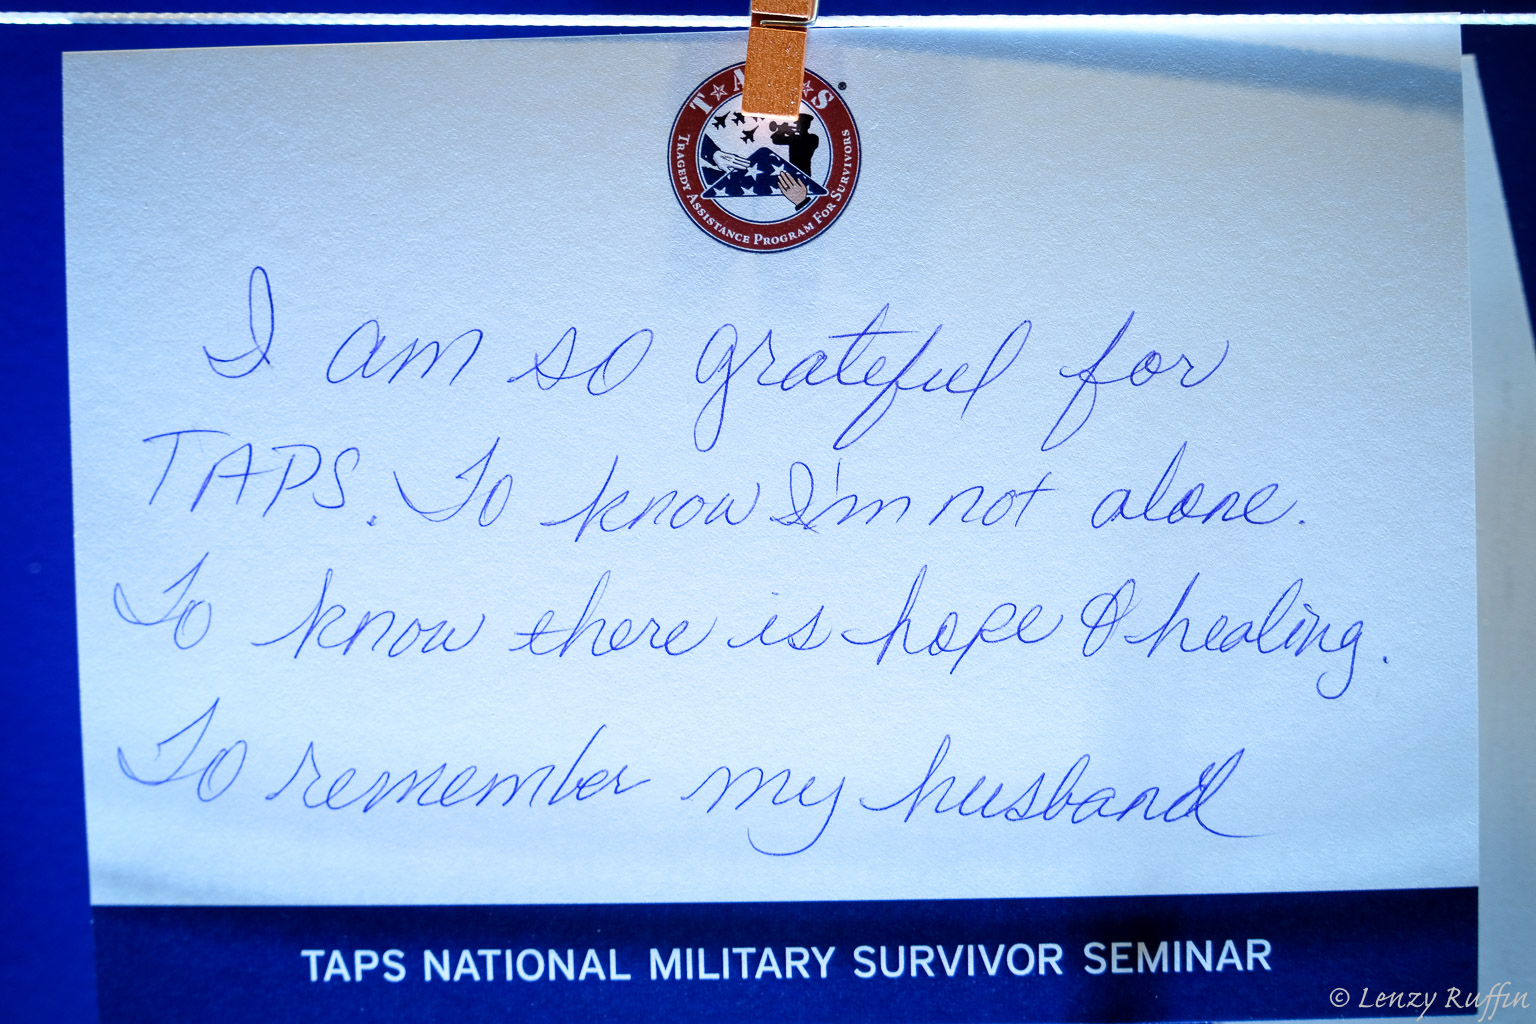 T A S
TRAGEDY ASSISTANCE PROGRAM FOR SURVIVORS
®
I am so grateful for
TAPS. To know I'm not alone.
To know there is hope & healing.
To remember my husband
TAPS NATIONAL MILITARY SURVIVOR SEMINAR
© Lenzy Ruffin